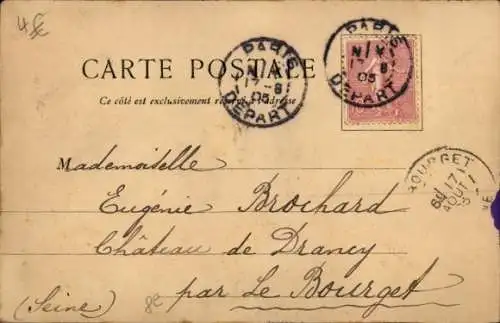 CARTE POSTALE
Ce côté est exclusivement réservé à l'adresse
PARIS
17 - 8
05
DEPART
PARIS
17 8
05
DEPART
BOURGET
17
AOUT
Mademoiselle
Eugénie Brochard
Château de Drancy
par Le Bourget
(Seine)